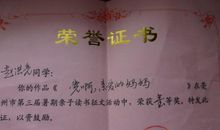 荣誉证书
同学：
你的作品《宽啊，亲爱的妈妈》在亳
州市第三届暑期亲子读书征文活动中，荣获 等奖，特发此
证，以资鼓励。